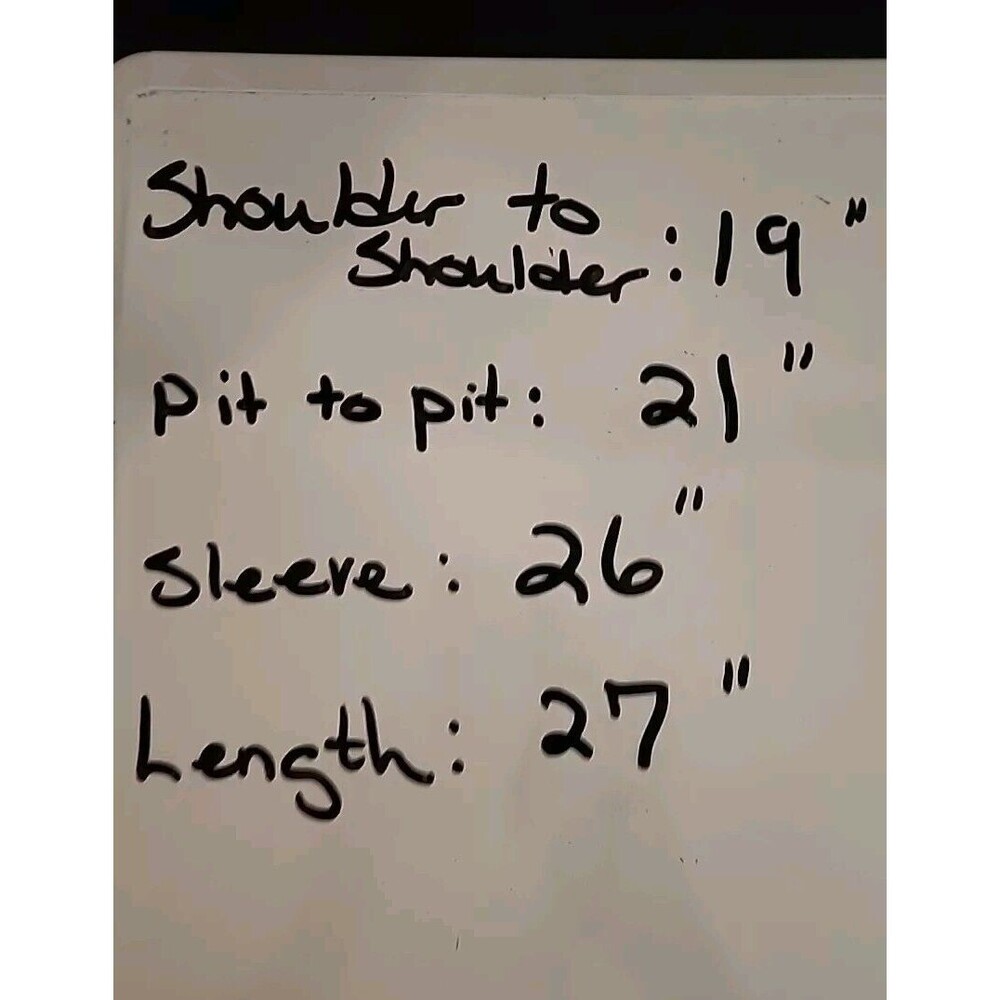 Shoulder to
Shoulder: 19"
Pit to pit: 21"
Sleeve: 26"
Length: 27"